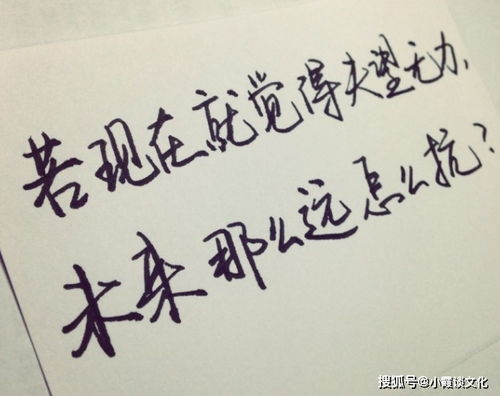 若现在就觉得失望无力、
未来那么远怎么抗？
搜狐号@小霞谈文化